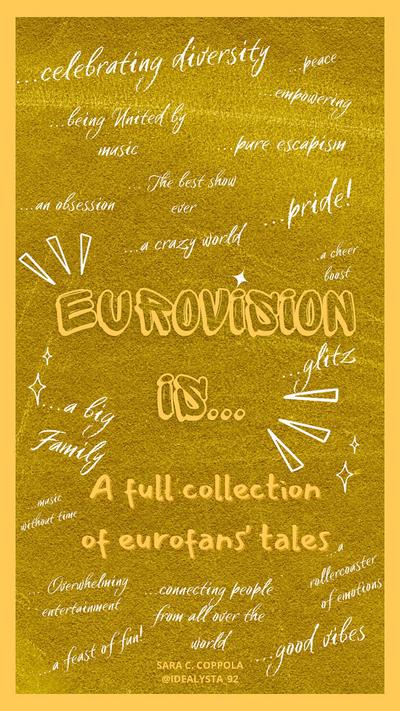 ...celebrating diversity
...peace
...empowering
...being United by
music
...pure escapism
...The best show
ever
...an obsession
...pride!
...a crazy world
...a cheer
boost
EUROVISION
...glitz
is...
...a big
Family
A full collection
music
without time
of eurofans' tales
...a
rollercoaster
of emotions
...Overwhelming
entertainment
...connecting people
from all over the
world
...a feast of fun!
...good vibes
SARA C. COPPOLA
@IDEALYSTA_92